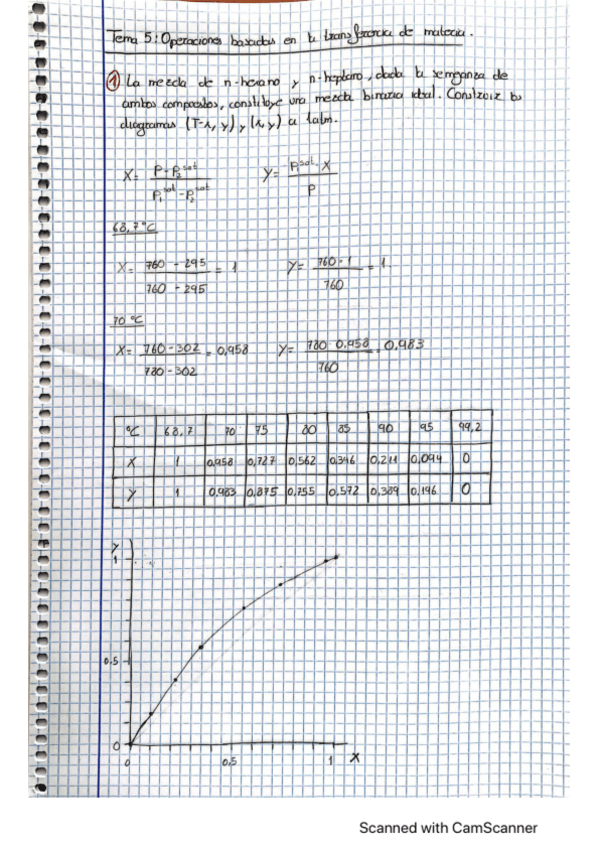 Tema 5: Operaciones basadas en la transferencia de materia.
① La mezcla de n-hexano y n-heptano, dada la semejanza de
ambos compuestos, constituye una mezcla binaria ideal. Construir los
diagramas (T-x, y) y (x, y) a 1atm.
X = (P - P₂^sat) / (P₁^sat - P₂^sat) Y = (P₁^sat · X) / P
68,7°C
X = (760 - 295) / (760 - 295) = 1 Y = (760 · 1) / 760 = 1.
70 °C
X = (760 - 302) / (780 - 302) = 0,958 Y = (780 · 0,958) / 760 = 0,983
°C 68,7 70 75 80 85 90 95 99,2
X 1 0,958 0,727 0,562 0,346 0,211 0,094 0
Y 1 0,983 0,875 0,755 0,572 0,389 0,196 0
Y
1
0.5
0
0 0,5 1 X
Scanned with CamScanner